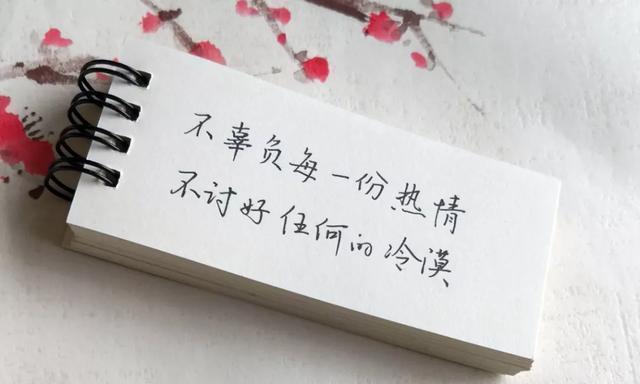 不辜负每一份热情
不讨好任何的冷漠